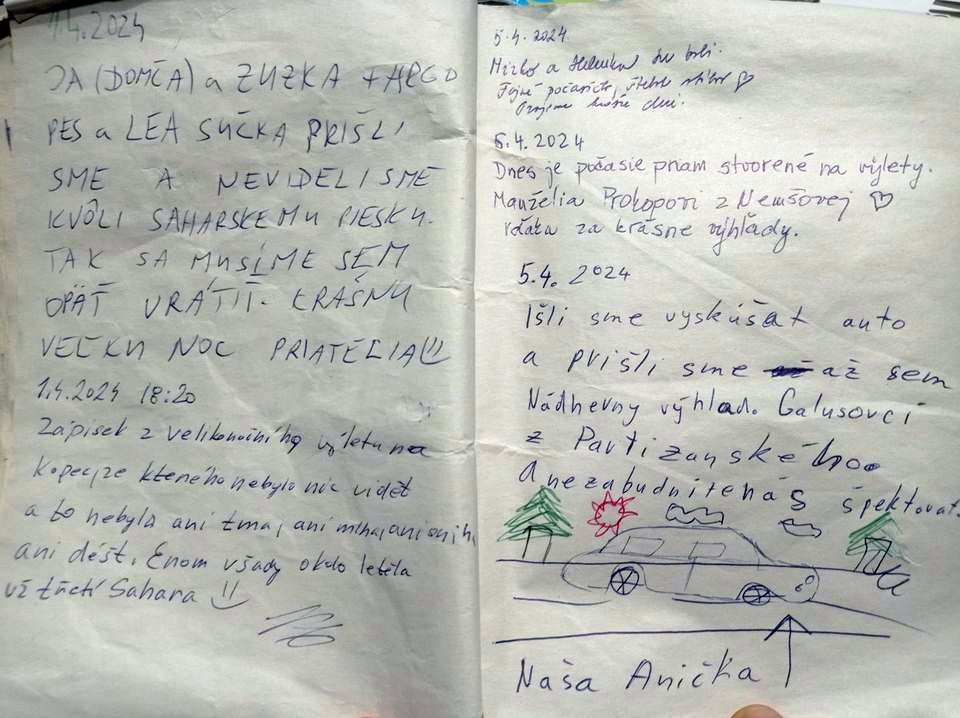 1.4.2024
JA (DOMČA) a ZUZKA + HUGO
PES a LEA SUČKA PRIŠLI
SME A NEVIDELI SME
KVÔLI SAHARSKEMU PIESKU.
TAK SA MUSÍME SEM
OPÄŤ VRÁTIŤ. KRÁSNU
VEĽKU NOC PRIATELIA
1.4.2024 18:20
Zápisek z velikonočního výletu na
kopec, ze kterého nebylo nic vidět
a to nebyla ani tma, ani mlha, ani sníh,
ani déšť. Enom všady okolo letěla
už třetí Sahara
5.4.2024
a su boli.
Fajné počasíčko,
dni.
5.4.2024
Dnes je počasie priam stvorené na výlety.
Manželia Prokopovi z Nemšovej ♡
vďaka za krásne výhľady.
5.4. 2024
Išli sme vyskúšat auto
a prišli sme až sem
Nádherny výhlad. Galusovci
z Partizanského.
A nezabudnite nás špektovat.
Naša Anička